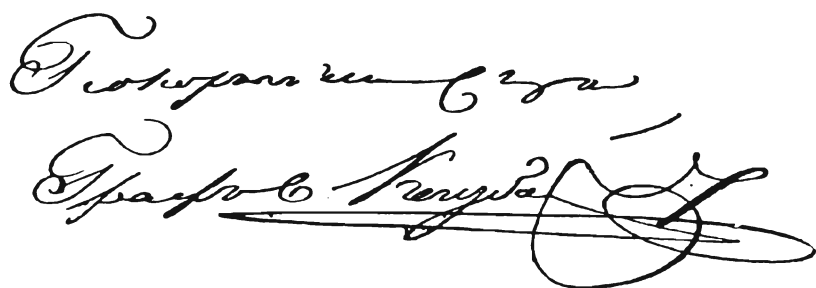 Покорнѣйшій слуга
Графъ В Кочубей